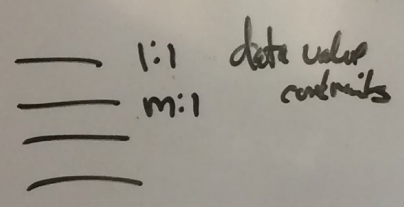 1:1 data value
m:1 constraints